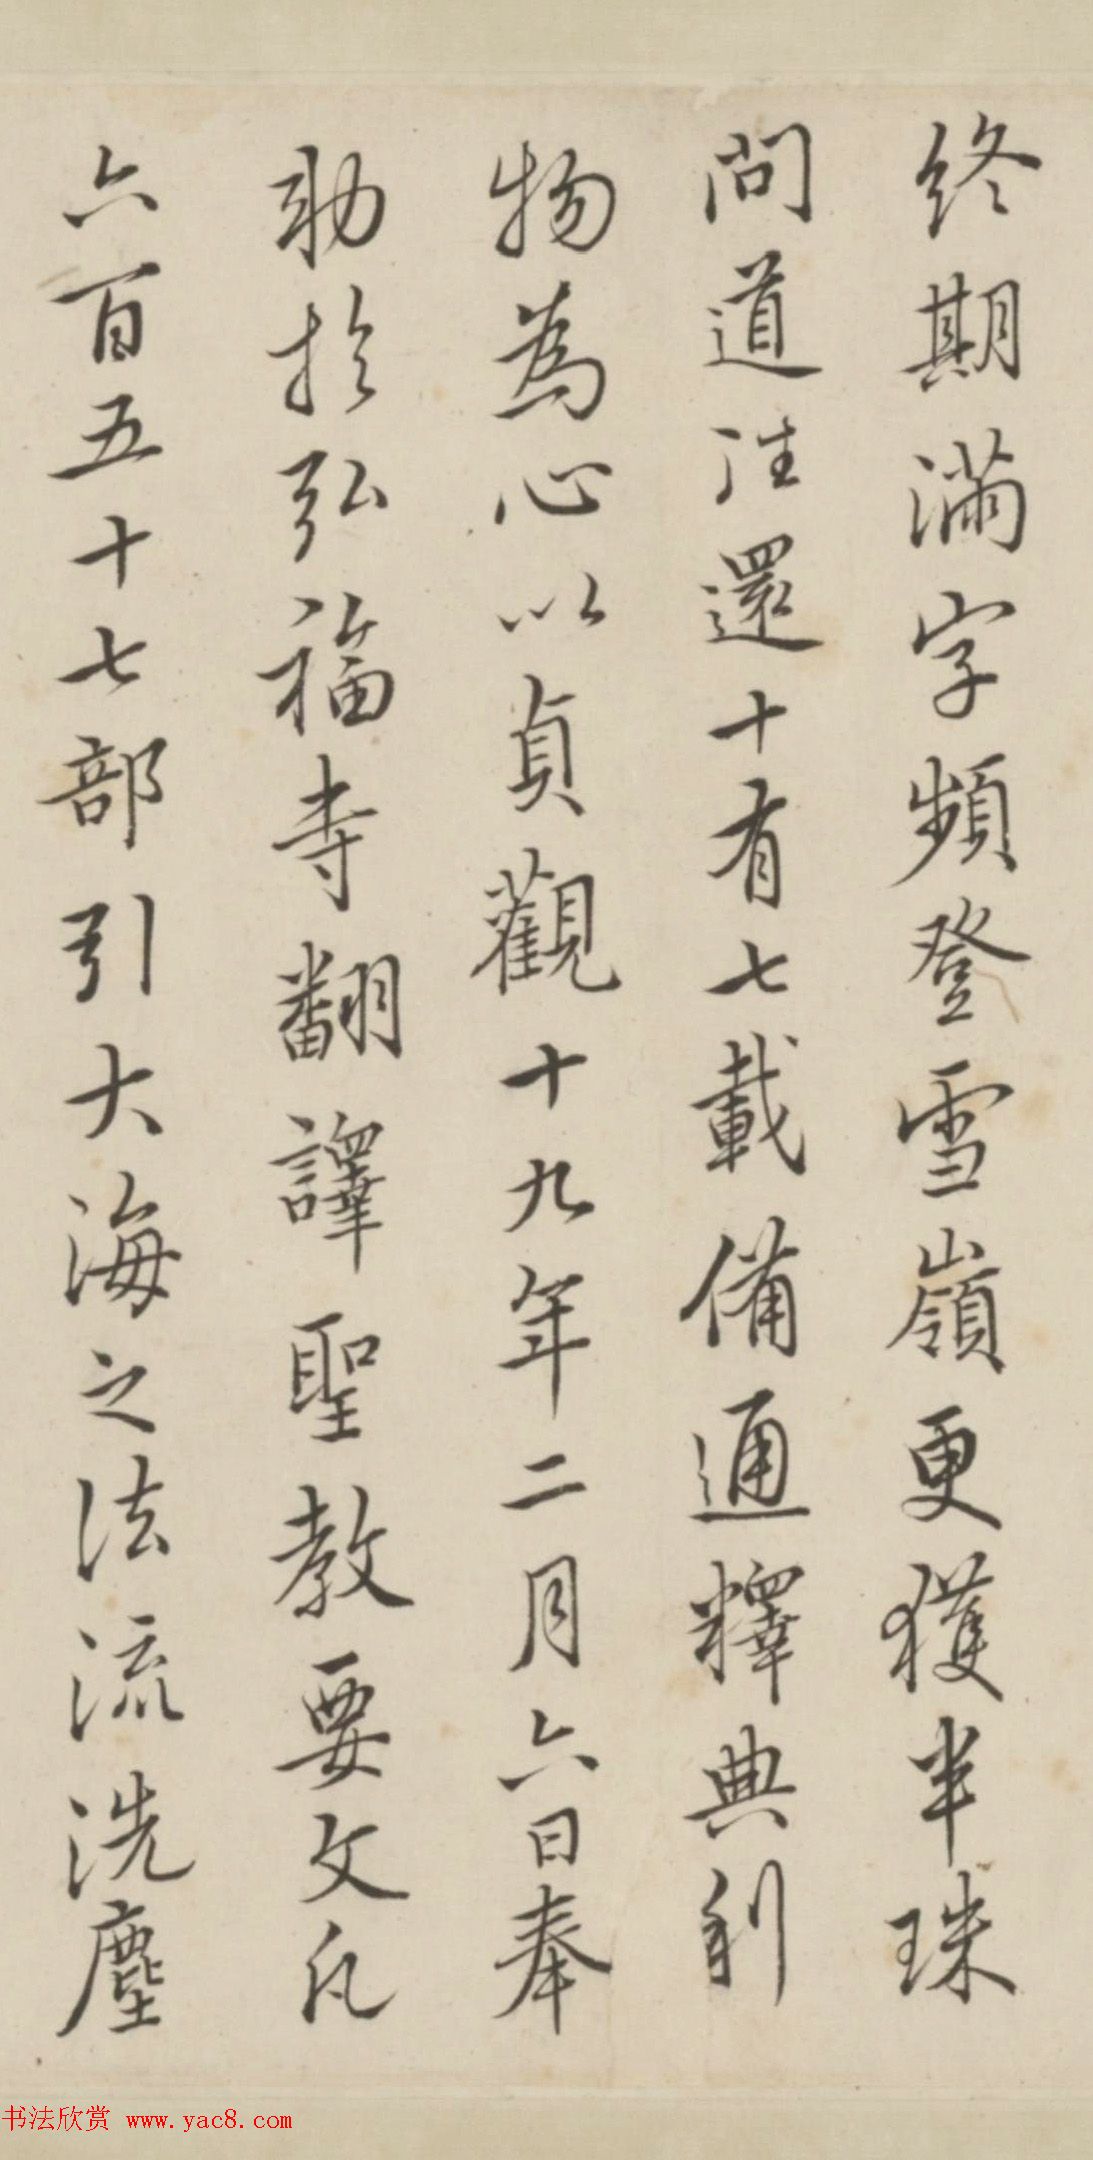 終期滿字頻登雪嶺更獲半珠
問道往還十有七載備通釋典利
物為心以貞觀十九年二月六日奉
勅於弘福寺翻譯聖教要文凡
六百五十七部引大海之法流洗塵
书法欣赏 www.yac8.com